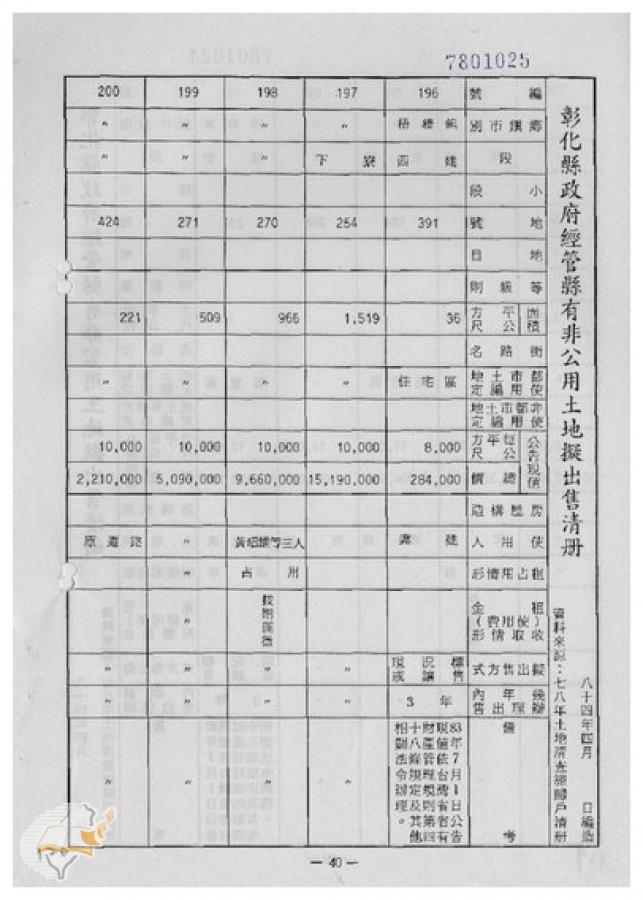 7801025
彰化縣政府經管縣有非公用土地擬出售清册
八十四年四月 日編造
資料來源：七八年土地清查總歸戶清册
編號 196 197 198 199 200
鄉鎮市別 梧棲鎮 〃 〃 〃 〃
段 四建 下寮 〃 〃 〃
小段
地號 391 254 270 271 424
地目
等級則
面積 平方公尺 36 1,519 966 509 221
街路名
都市土地使用編定 住宅區 〃 〃 〃 〃
非都市土地使用編定
公告現值 每平方公尺 8,000 10,000 10,000 10,000 10,000
總價 284,000 15,190,000 9,660,000 5,090,000 2,210,000
房屋構造
使用人 黃紹 等三人 〃 原道路
租占用情形 占用 〃
租金(使用費)收取情形 按期
擬出售方式 現況標售或讓售 〃 〃 〃 〃
幾年內辦理出售 3年 〃 〃 〃 〃
備考 83年7月1日公告現值依台灣省有財產管理規則第四十八條規定及其他相關法令辦理。 〃 〃 〃 〃
— 40 —